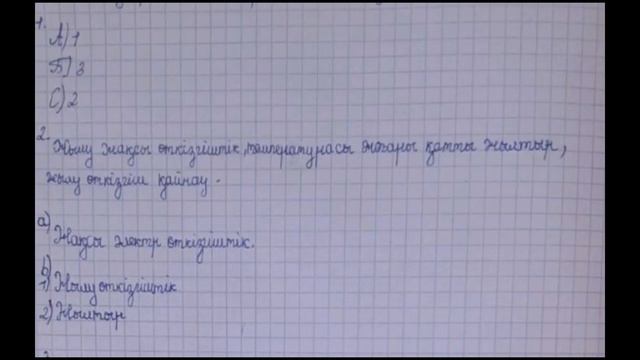 1.
А) 1
Б) 3
С) 2
2.
Жылу жақсы өткізгіштік, температурасы жоғары қатты жылтыр,
жылу өткізгіш қайнау.
а)
Жақсы электр өткізгіштік.
b)
1) Жылу өткізгіштік
2) Жылтыр